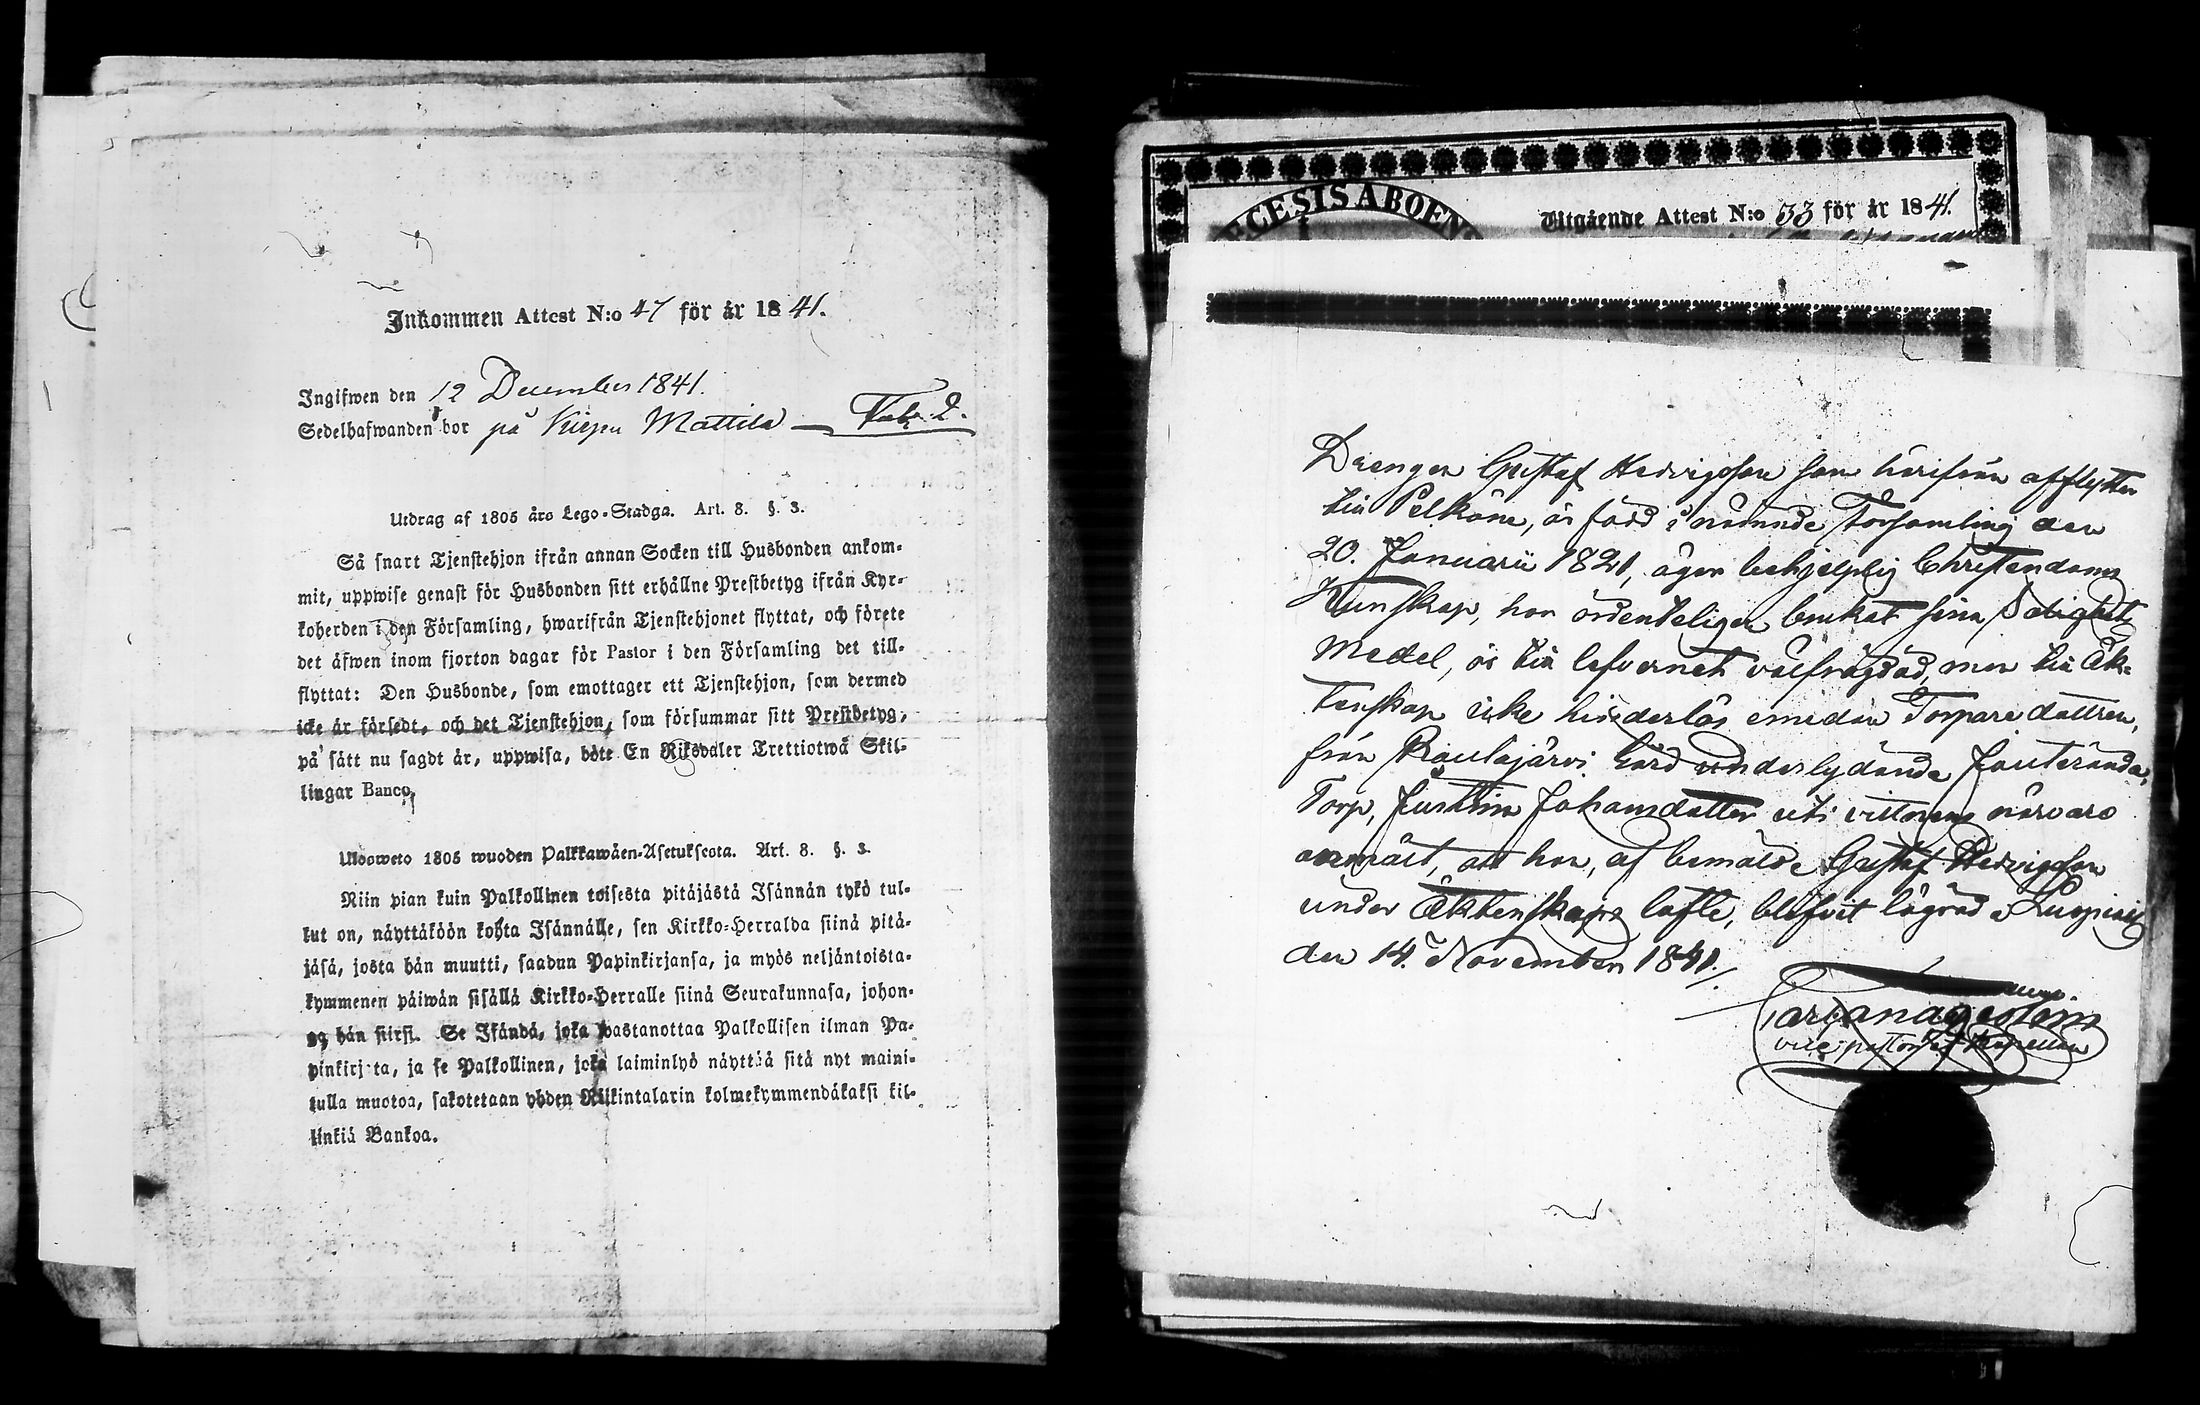 Inkommen Attest N:o 47 för år 1841.
Ingifwen den 12 December 1841.
Sedelhafwanden bor på Mattila
Utdrag af 1805 års Lego-Stadga. Art. 8. §. 3.
Så snart Tjenstehjon ifrån annan Socken till Husbonden ankom-
mit, uppwise genast för Husbonden sitt erhållne Prestbetyg ifrån Kyr-
koherden i den Församling, hwarifrån Tjenstehjonet flyttat, och förete
det äfwen inom fjorton dagar för Pastor i den Församling det till-
flyttat: Den Husbonde, som emottager ett Tjenstehjon, som dermed
icke är försedt, och det Tjenstehjon, som försummar sitt Prestbetyg,
på sätt nu sagdt är, uppwisa, böte En Riksdaler Trettiotwå Skil-
lingar Banco.
Ulosweto 1805 wuoden Palkkawäen-Asetuksesta. Art. 8. §. 3.
Niin pian kuin Palkollinen toisesta pitäjästä Isännän tykö tul-
lut on, näyttäköön kohta Isännälle, sen Kirkko-Herralda siinä pitä-
jäsä, josta hän muutti, saadun Papinkirjansa, ja myös neljäntoista-
kymmenen päiwän sisällä Kirkko-Herralle siinä Seurakunnasa, johon-
ga hän siirsi. Se Isändä, joka wastanottaa Palkollisen ilman Pa-
pinkirjata, ja se Palkollinen, joka laiminlyö näyttää sitä nyt maini-
tulla muotoa, sakotetaan yhden Riikintalarin kolmekymmendäkaksi kil-
linkiä Bankoa.
ŒCESIS ABOEN
Utgående Attest N:o 33 för år 1841.
Drengen Gustaf Hedvigsson som härifrån afflyttar
till Pelkäne, är född i nämnde Församling den
20. Januarii 1821, äger behjelplig Christendoms
Kunskap, har ordenteligen brukat sina Salighets
Medel, är till lefvernet välfrägdad, men till Äk-
tenskap icke hinderlös emedan Torpare dottren,
från Kaulajärvi gård underlydande
Torp, Johansdotter uti vittnens närvaro
anmält, att hon, af bemälde Gustaf Hedvigsson
under Äktenskaps löfte, blifvit lägrad.
den 14. November 1841.
vice pastor Kapellan